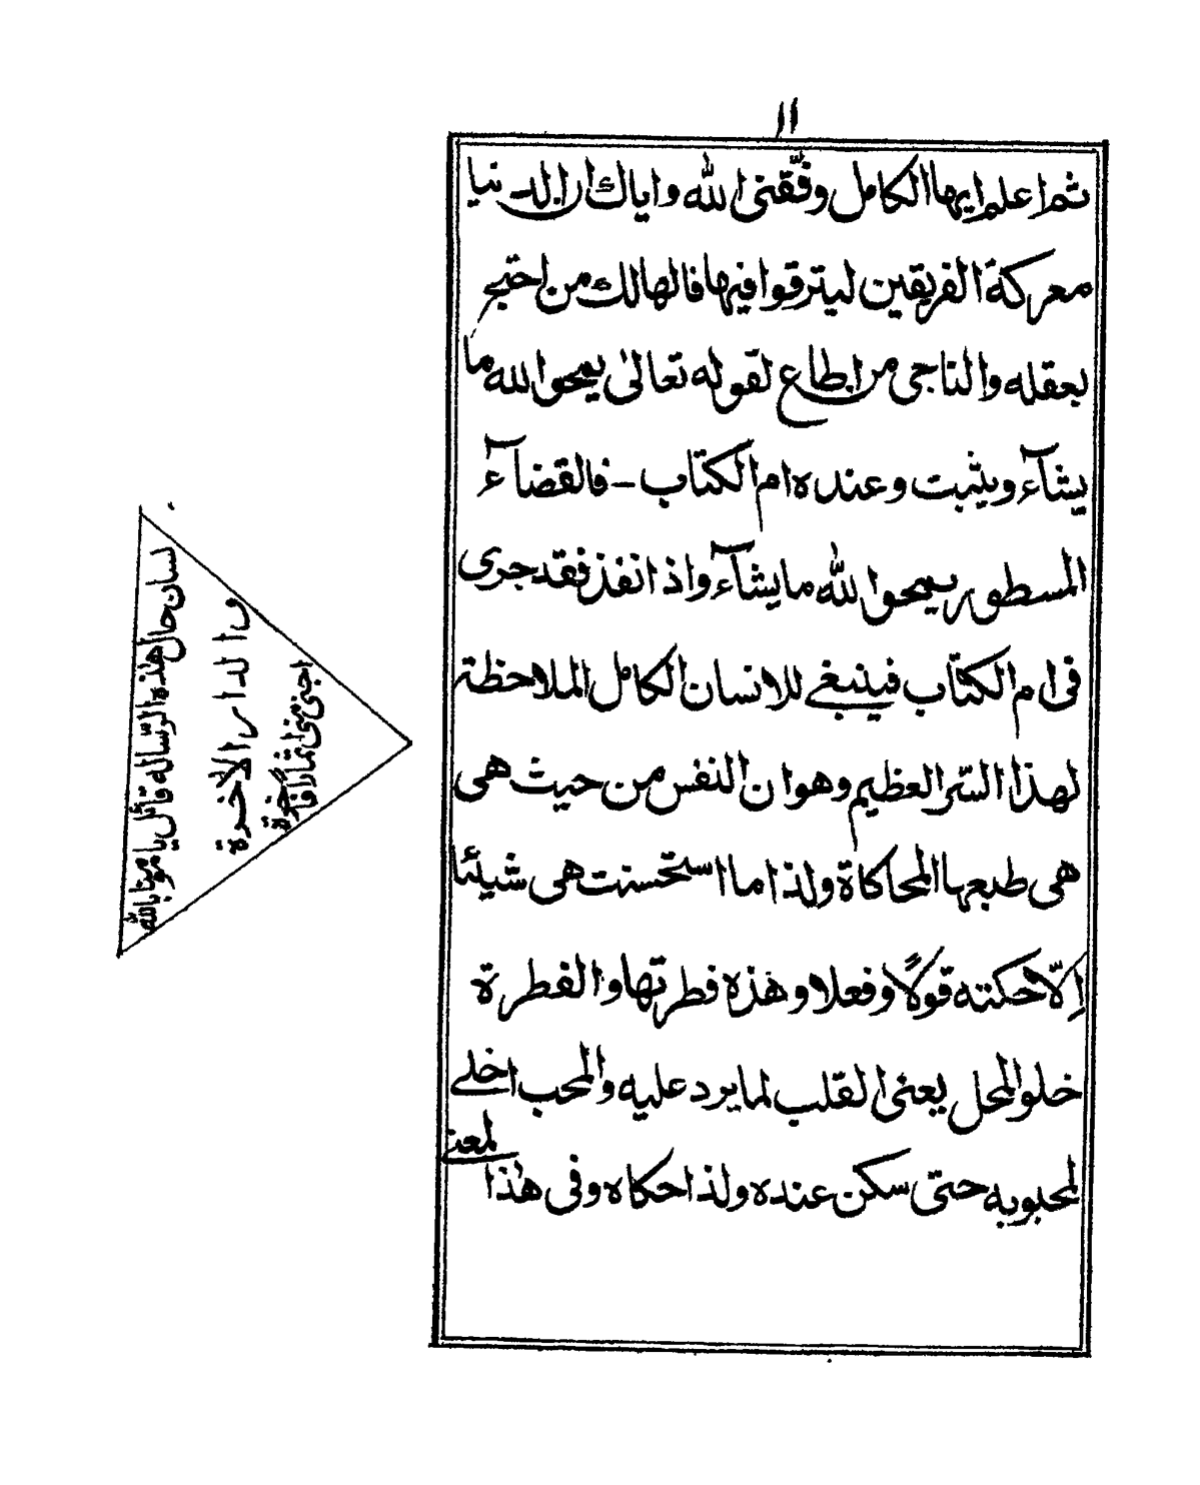 ١١
ثم اعلم ايها الكامل وفّقنى الله واياك ان الدنيا
معركة الفريقين ليترقوا فيها فالهالك من احتج
بعقله والناجى من اطاع لقوله تعالىٰ يمحوا الله ما
يشآء ويثبت وعنده ام الكتٰاب – فالقضآء
المسطور يمحوا الله ما يشآء واذا نفذ فقد جرى
فى ام الكتٰاب فينبغى للانسان الكامل الملاحظة
لهذا السّر العظيم وهو ان النفس من حيث هى
هى طبعها المحاكاة ولذا ما استحسنت هى شيئا
اِلّا حكته قولًا وفعلا وهٰذه فطرتها والفطرة
خلو المحل يعنى القلب لما يرد عليه والمحب اخلى
لمحبوبه حتى سكن عنده ولذا حكاه وفى هٰذا
لمعنى
لسان حال هٰذه الرّساله قائل يا مؤمنا بالله
والدار الاٰخرة
اجنى منى اثمارا فاخرة